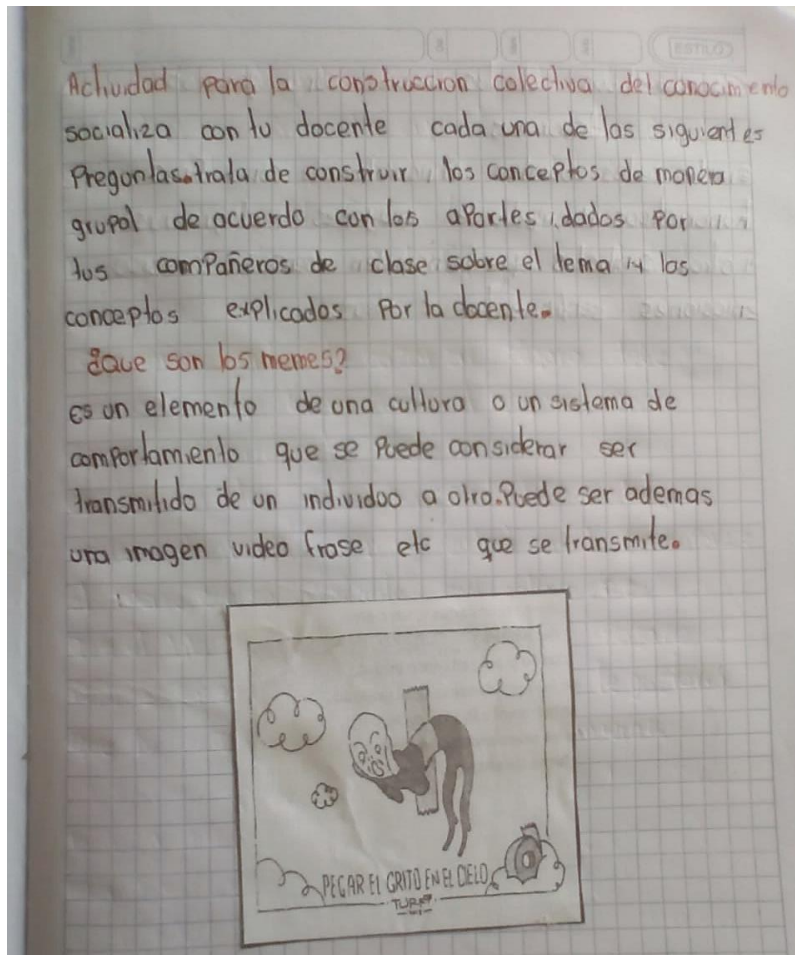 ESTILO
Actividad para la construccion colectiva del conocimento
socializa con tu docente cada una de las siguientes
Preguntas.trata de construir los conceptos de manera
grupal de acuerdo con los aportes dados por
tus compañeros de clase sobre el tema y los
conceptos explicados por la docente.
¿Que son los memes?
Es un elemento de una cultura o un sistema de
comportamiento que se puede considerar ser
transmitido de un individuo a otro.Puede ser ademas
una imagen video frase etc que se transmite.
PEGAR EL GRITO EN EL CIELO